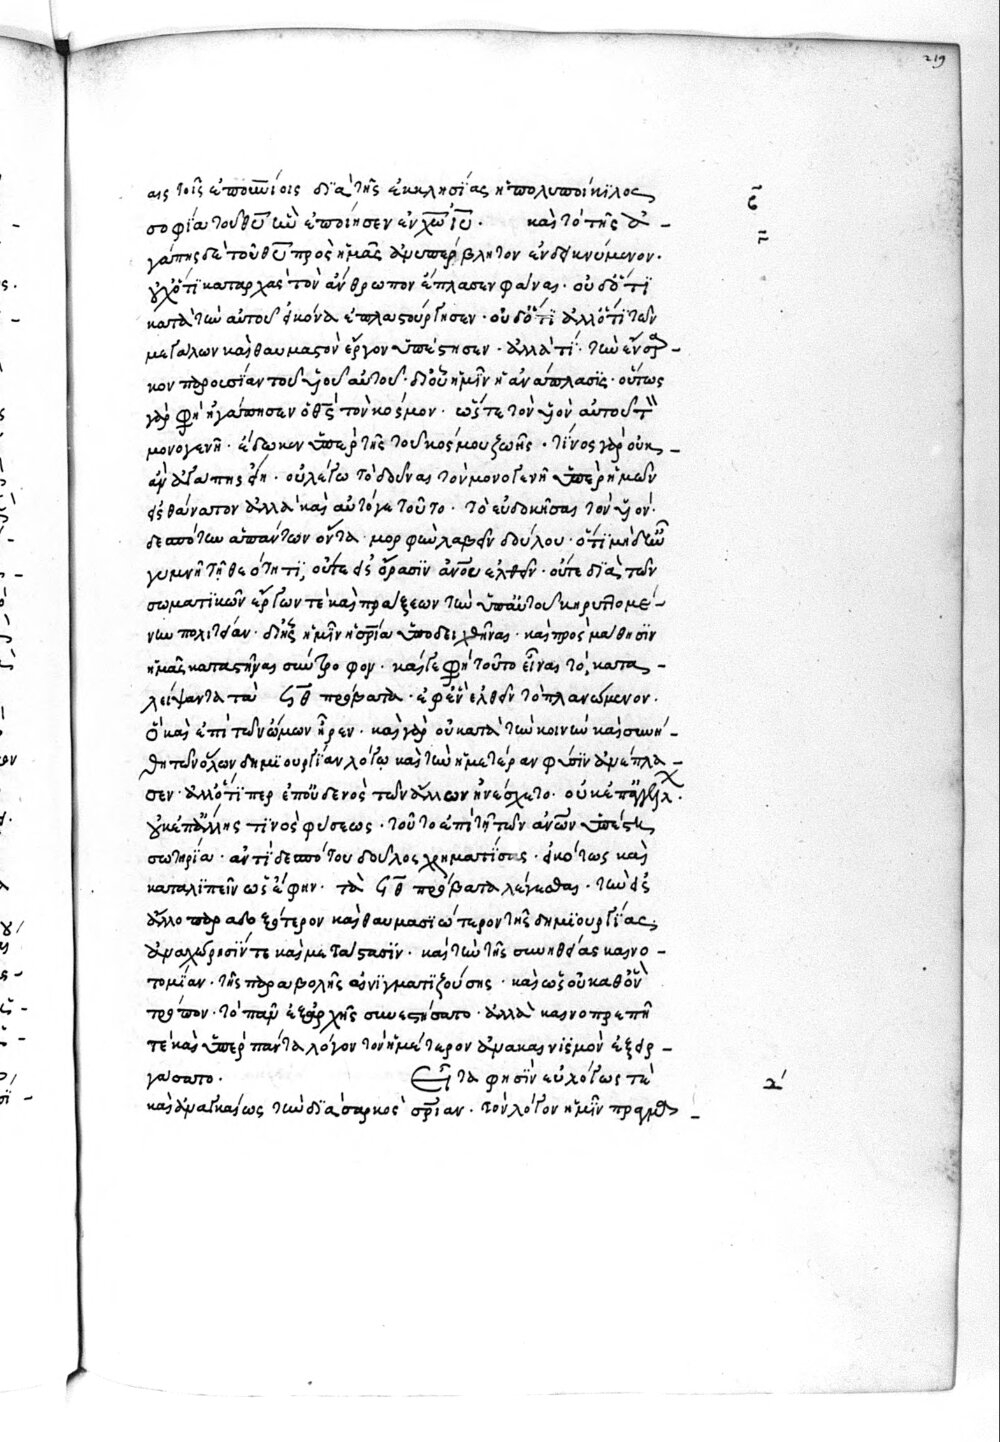 219
αις τοῖς ἐπουνίοις διὰ τῆς ἐκκλησίας ἡ πολυποίκιλος
σοφία τοῦ θυ ἣν ἐποίησεν ἐν χω ιυ · καὶ τὸ τῆς ἀ -
γάπης δὲ τοῦ θυ πρὸς ἡμᾶς ἀνυπέρβλητον ἐνδεικνύμενον ·
οὐχ ὅτι καταρχὰς τὸν ἄνθρωπον ἔπλασεν φαίνας · οὐδ ὅτι
κατὰ τὴν αὐτοῦ εἰκόνα ἐπλαστούργησεν · οὐδ ὅτι ἀλλ ὅτι τῶν
μεγάλων καὶ θαυμαστὸν ἔργον ὑπέστησεν · ἀλλὰ τί · τὴν ἔνσαρ -
κον παρουσίαν τοῦ υἱοῦ αὐτοῦ · δι οὗ ἡμῖν ἡ ἀνάπλασις · οὕτως
γὰρ φη ἠγάπησεν ὁ θς τὸν κόσμον · ὥστε τὸν υἱὸν αὐτοῦ τὸν
μονογενῆ · ἔδωκεν ὑπὲρ τῆς τοῦ κόσμου ζωῆς · τίνος γὰρ οὐκ -
ἂν ἀγάπης εἴη · οὐ λέγω τὸ δοῦναι τὸν μονογενῆ ὑπὲρ ἡμῶν
εἰς θάνατον ἀλλὰ καὶ αὐτό γε τοῦτο · τὸ εὐδοκῆσαι τὸν υἱὸν ·
δεσπότην ἁπάντων ὄντα · μορφὴν λαβεῖν δούλου · ὅτι μηδὲ
γυμνῇ τῇ θεότητι, οὔτε εἰς ὅρασιν ἀνου ἐλθεῖν · οὔτε διὰ τῶν
σωματικῶν ἔργων τὲ καὶ πράξεων τὴν ὑπ αὐτοῦ κηρυττομέ -
νην πολιτείαν · ἡμῖν ἡ σρία ὑποδειχθῆναι · καὶ πρὸς μάθησιν
ἡμᾶς καταστῆναι σύντροφον · καί γε φη τοῦτο εἶναι τὸ, κατα -
λείψαντα τὰ ϟθ πρόβατα · ἐφ ἓν ἐλθεῖν τὸ πλανώμενον ·
ὃ καὶ ἐπὶ τῶν ὤμων ἦρεν · καὶ γὰρ οὐ κατὰ τὴν κοινὴν καὶ συνή -
θη τῶν ὅλων δημιουργίαν λόγω καὶ τὴν ἡμετέραν φύσιν ἀνέπλα -
σεν · ἀλλ ὅτι περ ἐπ οὐδενὸς τῶν ἄλλων ἠνέσχετο · οὐκ ἐπ ἀγγέλων ·
οὐκ ἐπ ἄλλης τινὸς φύσεως · τοῦτο ἐπὶ τῇ τῶν ἀνων ὑπέστη
σωτηρία · ἀντὶ δεσπότου δοῦλος χρηματίσας · εἰκότως καὶ
καταλιπεῖν ὡς ἔφην · τὰ ϟθ πρόβατα λέγεται · τὴν εἰς
ἄλλο παραδοξότερον καὶ θαυμασιώτερον τῆς δημιουργίας,
ἀναχώρησίν τε καὶ μετάστασιν · καὶ τὴν τῆς συνηθείας καινο -
τομίαν · τῆς παραβολῆς αἰνιγματιζούσης · καὶ ὡς οὐ καθ ὃν
τρόπον · τὸ πᾶν ἐξ ἀρχῆς συνεστήσατο · ἀλλὰ καινοπρεπῆ
τὲ καὶ ὑπὲρ πάντα λόγον τὸν ἡμέτερον ἀνακαινισμὸν ἐξειρ -
γάσατο · Εἶτα φησὶν εὐλόγως τὲ
καὶ ἀναγκαίως τὴν διὰ σαρκὸς σρίαν · τὸν λόγον ἡμῖν πραγμα -